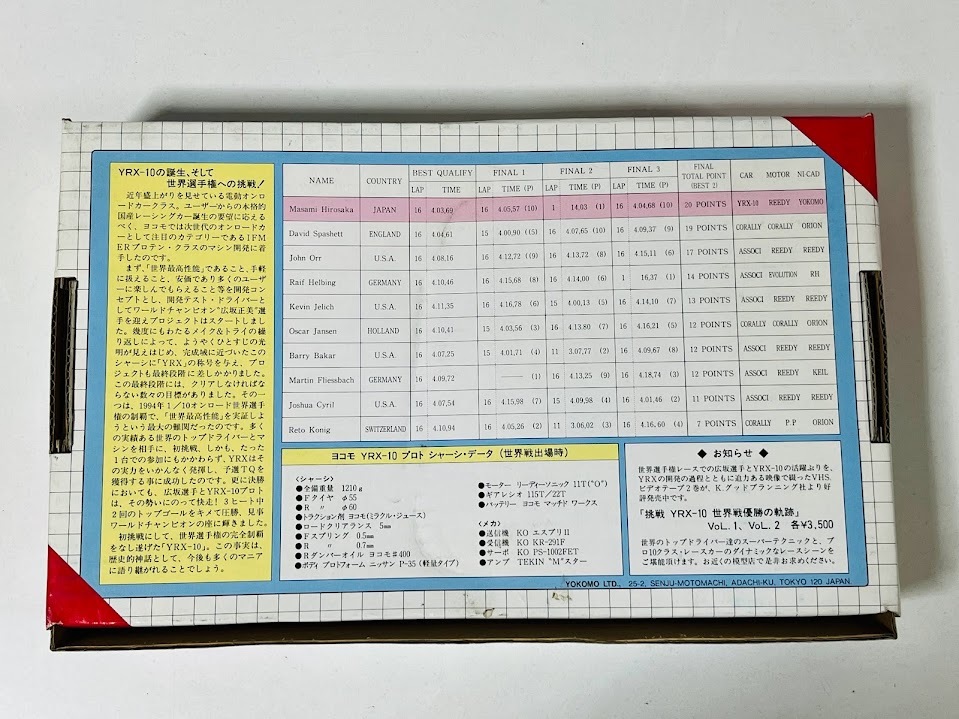 YRX-10の誕生、そして
世界選手権への挑戦!
近年盛上がりを見せている電動オンロ
ードカークラス。ユーザーからの本格的
国産レーシングカー誕生の要望に応える
べく、ヨコモでは次世代のオンロードカ
ーとして注目のカテゴリーであるIFM
ERプロテン・クラスのマシン開発に着
手したのです。
まず、「世界最高性能」であること、手軽
に扱えること、安価であり多くのユーザ
ーに楽しんでもらえること等を開発コン
セプトとし、開発テスト・ドライバーと
してワールドチャンピオン"広坂正美"選
手を迎えプロジェクトはスタートしました。
幾度にもわたるメイク&トライの繰
り返しによって、ようやくひとすじの光
明が見えはじめ、完成域に近づいたこの
シャーシに「YRX」の称号を与え、プロ
ジェクトも最終段階に差しかかりました。
この最終段階には、クリアしなければな
らない数々の目標がありました。その一
つは、1994年1/10オンロード世界選手
権の制覇で、「世界最高性能」を実証しよ
うという最大の難関だったのです。多く
の実績ある世界のトップドライバーとマ
シンを相手に、初挑戦、しかも、たった
1台での参加にもかかわらず、YRXはそ
の実力をいかんなく発揮し、予選TQを
獲得する事に成功したのです。更に決勝
においても、広坂選手とYRX-10プロト
は、その勢いにのって快走!3ヒート中
2回のトップゴールをキメて圧勝、見事
ワールドチャンピオンの座に輝きました。
初挑戦にして、世界選手権の完全制覇
をなし遂げた「YRX-10」。この事実は、
歴史的神話として、今後も多くのマニア
に語り継がれることでしょう。
NAME COUNTRY BEST QUALIFY FINAL 1 FINAL 2 FINAL 3 FINAL TOTAL POINT (BEST 2) CAR MOTOR NI-CAD
LAP TIME LAP TIME (P) LAP TIME (P) LAP TIME (P)
Masami Hirosaka JAPAN 16 4.03,69 16 4.05,57 (10) 1 14,03 (1) 16 4.04,68 (10) 20 POINTS YRX-10 REEDY YOKOMO
David Spashett ENGLAND 16 4.04,61 15 4.00,90 (15) 16 4.07,65 (10) 16 4.09,37 (9) 19 POINTS CORALLY CORALLY ORION
John Orr U.S.A. 16 4.08,16 16 4.12,72 (9) 16 4.13,72 (8) 16 4.15,11 (6) 17 POINTS ASSOCI REEDY REEDY
Raif Helbing GERMANY 16 4.10,46 16 4.15,68 (8) 16 4.14,00 (6) 1 16,37 (1) 14 POINTS ASSOCI EVOLUTION RH
Kevin Jelich U.S.A. 16 4.11,35 16 4.16,78 (6) 15 4.00,13 (5) 16 4.14,10 (7) 13 POINTS ASSOCI REEDY REEDY
Oscar Jansen HOLLAND 16 4.10,41 15 4.03,56 (3) 16 4.13.80 (7) 16 4.16,21 (5) 12 POINTS CORALLY CORALLY ORION
Barry Bakar U.S.A. 16 4.07,25 15 4.01,71 (4) 11 3.07,77 (2) 16 4.09,67 (8) 12 POINTS ASSOCI REEDY KEIL
Martin Fliessbach GERMANY 16 4.09,72 —— (1) 16 4.13,25 (9) 16 4.18,74 (3) 12 POINTS ASSOCI REEDY KEIL
Joshua Cyril U.S.A. 16 4.07,54 16 4.15,98 (7) 15 4.09,98 (4) 16 4.01,46 (2) 11 POINTS ASSOCI REEDY REEDY
Reto Konig SWITZERLAND 16 4.10,94 16 4.05,26 (2) 11 3.06,02 (3) 16 4.16,60 (4) 7 POINTS CORALLY P.P ORION
ヨコモ YRX-10 プロト シャーシ・データ (世界戦出場時)
〈シャーシ〉
●全備重量 1210g
●Fタイヤ φ55
●R 〃 φ60
●トラクション剤 ヨコモ(ミラクル・ジュース)
●ロードクリアランス 5mm
●Fスプリング 0.5mm
●R 〃 0.7mm
●Rダンパーオイル ヨコモ#400
●ボディ プロトフォーム ニッサン P-35 (軽量タイプ)
●モーター リーディーソニック 11T("O")
●ギアレシオ 115T/22T
●バッテリー ヨコモ マッチド ワークス
〈メカ〉
●送信機 KO エスプリII
●受信機 KO KR-291F
●サーボ KO PS-1002FET
●アンプ TEKIN "M"スター
◆ お知らせ ◆
世界選手権レースでの広坂選手とYRX-10の活躍ぶりを、
YRXの開発の過程とともに迫力ある映像で綴ったVHS.
ビデオテープ2巻が、K.グッドプランニング社より好
評発売中です。
「挑戦 YRX-10 世界戦優勝の軌跡」
VOL.1、VOL.2 各¥3,500
世界のトップドライバー達のスーパーテクニックと、プ
ロ10クラス・レースカーのダイナミックなレースシーンを
ご堪能頂けます。お近くの模型店で是非お求めください。
YOKOMO LTD., 25-2, SENJU-MOTOMACHI, ADACHI-KU, TOKYO 120 JAPAN.